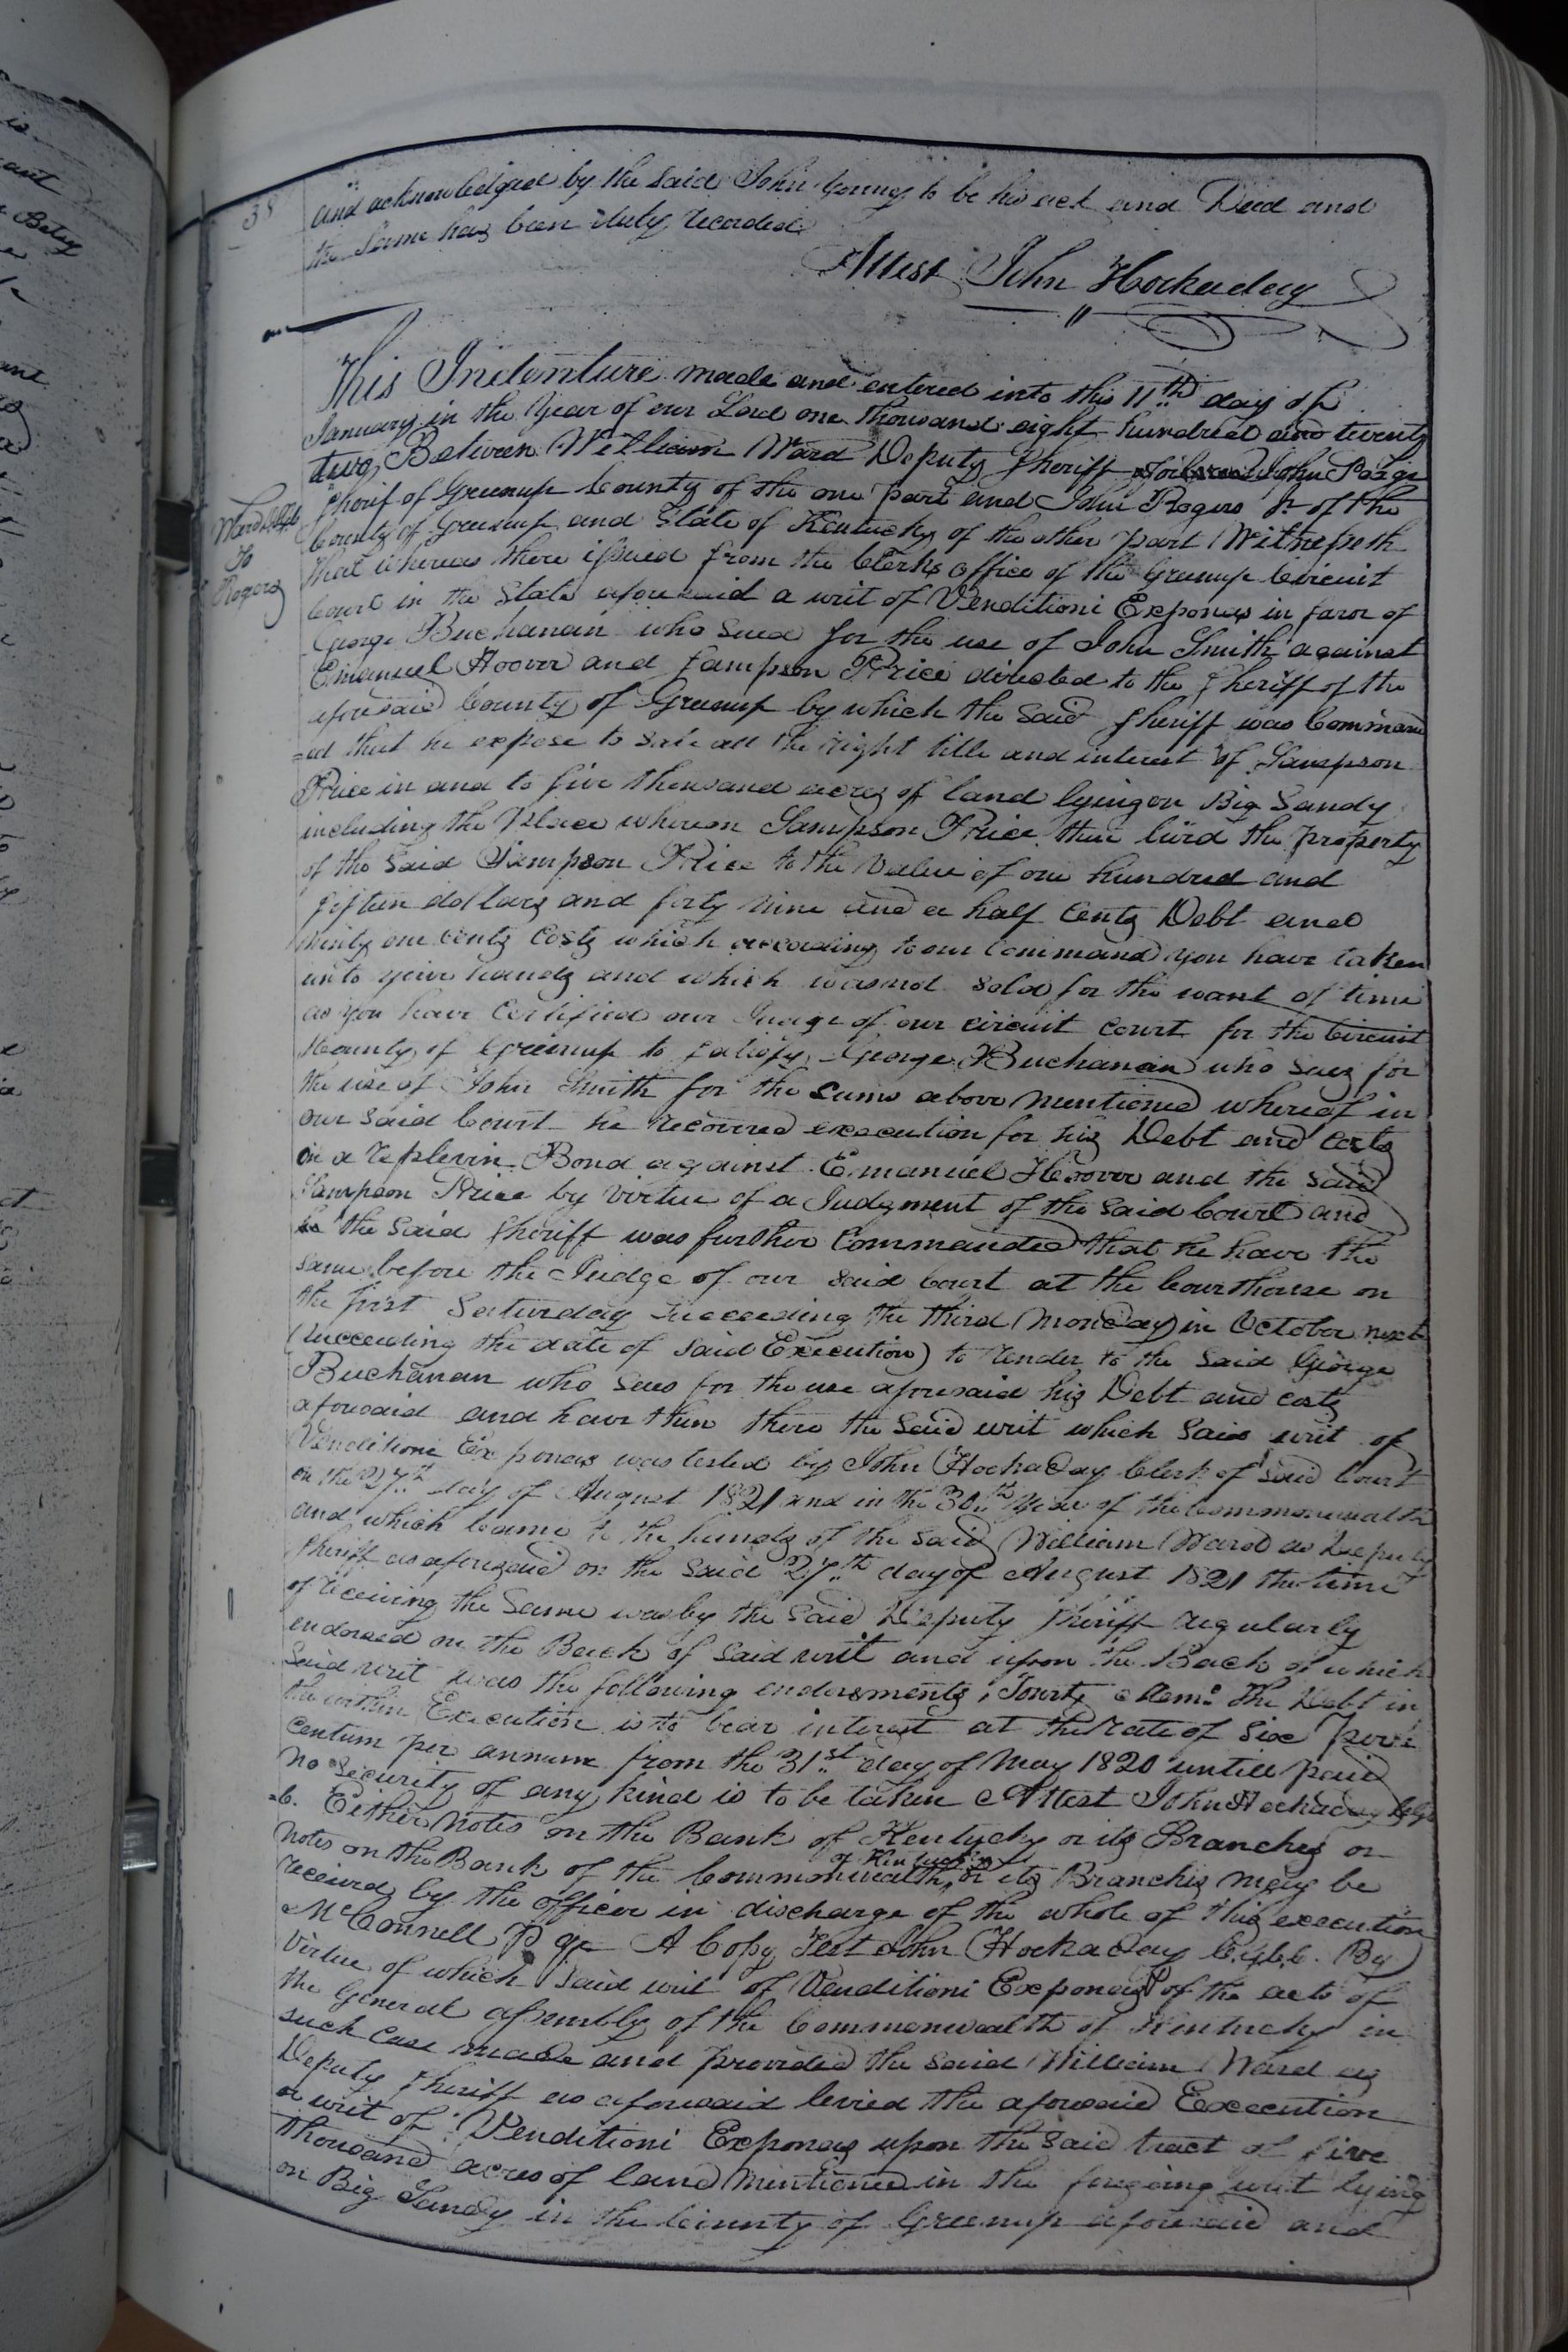 38
and acknowledged by the said John Young to be his act and Deed and
the same has been duly recorded
Attest John Hockaday
This Indenture made and entered into this 11th day of
January in the Year of our Lord one thousand eight hundred and twenty
two Between William Ward Deputy Sheriff John
Sherif of Greenup County of the one part and John Rogers Jr of the
County of Greenup and State of Kentucky of the other part Witnesseth
Ward
To
Rogers
that whereas there issued from the Clerks office of the Greenup Circuit
Court in the State aforesaid a writ of Venditioni Exponas in favor of
George Buchanan who sued for the use of John Smith against
Emanuel Hoover and Sampson Price directed to the Sheriff of the
aforesaid County of Greenup by which the said Sheriff was Command
=ed that he expose to sale all the right title and interest of Sampson
Price in and to five thousand acres of land lying on Big Sandy
including the Place whereon Sampson Price then lived the property
of the said Sampson Price to the value of one hundred and
fifteen dollars and forty nine and a half Cents Debt and
ninty one cents Costs which according to our Command you have taken
into your hands and which was not sold for the want of time
as you have Certified our Judge of our circuit court for the Circuit
County of Greenup to satisfy George Buchanan who sues for
the use of John Smith for the sums above mentioned whereof in
our said Court he recovered execution for his Debt and Costs
on a replevin Bond against Emanuel Hoover and the said
Sampson Price by virtue of a Judgment of the said Court and
the said Sheriff was further Commanded that he have the
same before the Judge of our said Court at the Courthouse on
the first Saturday succeeding the third Monday in October next
(succeeding the date of said Execution) to render to the said George
Buchanan who sues for the use aforesaid his Debt and costs
aforesaid and have then there the said writ which said writ of
Venditioni Exponas was tested by John Hockaday Clerk of said Court
on the 27th day of August 1821 and in the 30th Year of the Commonwealth
and which came to the hands of the said William Ward as Deputy
Sheriff as aforesaid on the said 27th day of August 1821 the time
of receiving the same was by the said Deputy Sheriff regularly
endorsed on the Back of said writ and upon the Back of which
said writ was the following endorsments, Towit, Memo The Debt in
the within Execution is to bear interest at the rate of six per
centum per annum from the 31st day of May 1820 untill paid
no security of any kind is to be taken Attest John Hockaday
Either Notes on the Bank of Kentucky or its Branches or
notes on the Bank of the Commonwealth of Kentucky or its Branches may be
received by the officer in discharge of the whole of this execution
McConnell P A Copy Test John Hockaday C.G.C.C. By
virtue of which said writ of Venditioni Exponas & of the acts of
the General assembly of the Commonwealth of Kentucky in
such Case made and provided the said William Ward as
Deputy Sheriff as aforesaid levied the aforesaid Execution
or writ of Venditioni Exponas upon the said tract of five
thousand acres of land mentioned in the foregoing writ lying
on Big Sandy in the County of Greenup aforesaid and